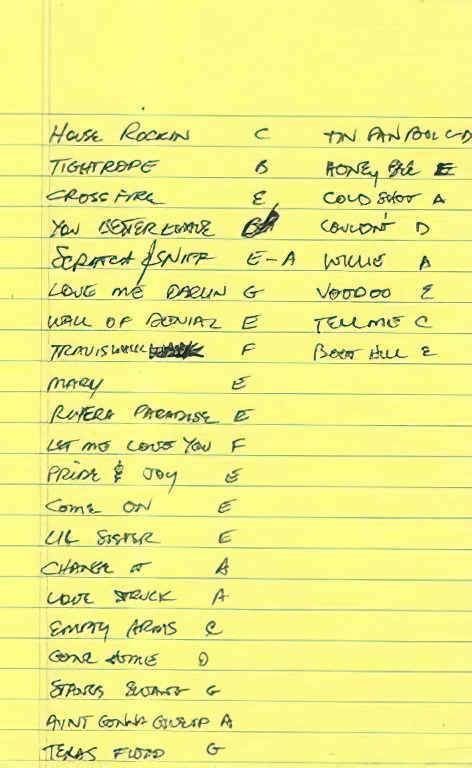 HOUSE ROCKIN C
TIGHTROPE B
CROSSFIRE E
YOU BETTER LEAVE
SCRATCH & SNIFF E-A
LOVE ME DARLIN G
WALL OF DENIAL E
TRAVIS WALK F
MARY E
RIVIERA PARADISE E
LET ME LOVE YOU F
PRIDE & JOY E
COME ON E
LIL SISTER E
CHANGE IT A
LOVE STRUCK A
EMPTY ARMS C
GONE HOME D
STANGS SWANG G
AINT GONNA GIVEUP A
TEXAS FLOOD G
TIN PAN C-D
HONEY BEE E
COLD SHOT A
COULDN'T D
WILLIE A
VOODOO E
TELL ME C
BOOT HILL E